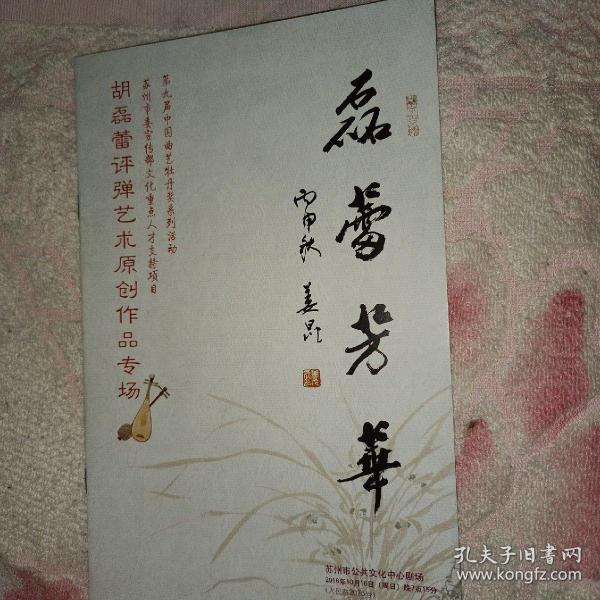 磊蕾芳華
丙申秋 姜昆
第九届中国曲艺牡丹奖系列活动
苏州市委宣传部文化重点人才支持项目
胡磊蕾评弹艺术原创作品专场
苏州市公共文化中心剧场
2016年10月16日(周日)晚7点15分
孔夫子旧书网
www.kongfz.com